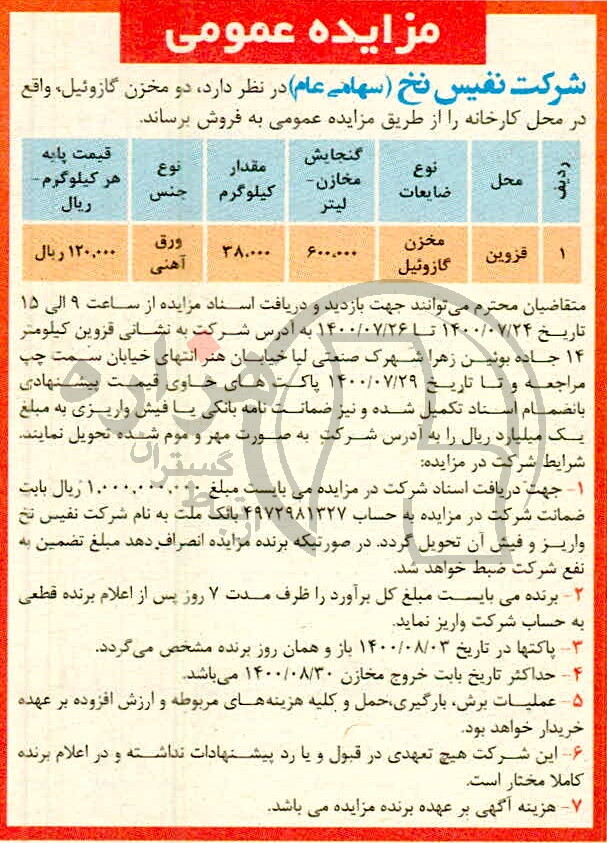 مزایده عمومی
شرکت نفیس نخ (سهامی عام) در نظر دارد، دو مخزن گازوئیل، واقع
در محل کارخانه را از طریق مزایده عمومی به فروش برساند.
ردیف محل نوع ضایعات گنجایش مخازن- لیتر مقدار کیلوگرم نوع جنس قیمت پایه هر کیلوگرم- ریال
۱ قزوین مخزن گازوئیل ۶۰۰،۰۰۰ ۳۸،۰۰۰ ورق آهنی ۱۲۰،۰۰۰ ریال
متقاضیان محترم می‌توانند جهت بازدید و دریافت اسناد مزایده از ساعت ۹ الی ۱۵
تاریخ ۱۴۰۰/۰۷/۲۴ تا ۱۴۰۰/۰۷/۲۶ به آدرس شرکت به نشانی قزوین کیلومتر
۱۴ جاده بوئین زهرا شهرک صنعتی لیا خیابان هنر انتهای خیابان سمت چپ
مراجعه و تا تاریخ ۱۴۰۰/۰۷/۲۹ پاکت های حاوی قیمت پیشنهادی
بانضمام اسناد تکمیل شده و نیز ضمانت نامه بانکی یا فیش واریزی به مبلغ
یک میلیارد ریال را به آدرس شرکت به صورت مهر و موم شده تحویل نمایند.
شرایط شرکت در مزایده:
۱- جهت دریافت اسناد شرکت در مزایده می بایست مبلغ ۱،۰۰۰،۰۰۰،۰۰۰ ریال بابت
ضمانت شرکت در مزایده به حساب ۴۹۷۲۹۸۱۳۲۷ بانک ملت به نام شرکت نفیس نخ
واریز و فیش آن تحویل گردد. در صورتیکه برنده مزایده انصراف دهد مبلغ تضمین به
نفع شرکت ضبط خواهد شد.
۲- برنده می بایست مبلغ کل برآورد را ظرف مدت ۷ روز پس از اعلام برنده قطعی
به حساب شرکت واریز نماید.
۳- پاکتها در تاریخ ۱۴۰۰/۰۸/۰۳ باز و همان روز برنده مشخص می‌گردد.
۴- حداکثر تاریخ بابت خروج مخازن ۱۴۰۰/۰۸/۳۰ می‌باشد.
۵- عملیات برش، بارگیری،حمل و کلیه هزینه‌های مربوطه و ارزش افزوده بر عهده
خریدار خواهد بود.
۶- این شرکت هیچ تعهدی در قبول و یا رد پیشنهادات نداشته و در اعلام برنده
کاملا مختار است.
۷- هزینه آگهی بر عهده برنده مزایده می باشد.